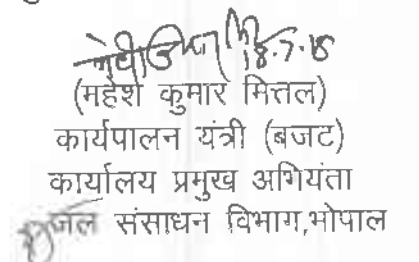 18.7.18
(महेश कुमार मित्तल)
कार्यपालन यंत्री (बजट)
कार्यालय प्रमुख अभियंता
जल संसाधन विभाग,भोपाल